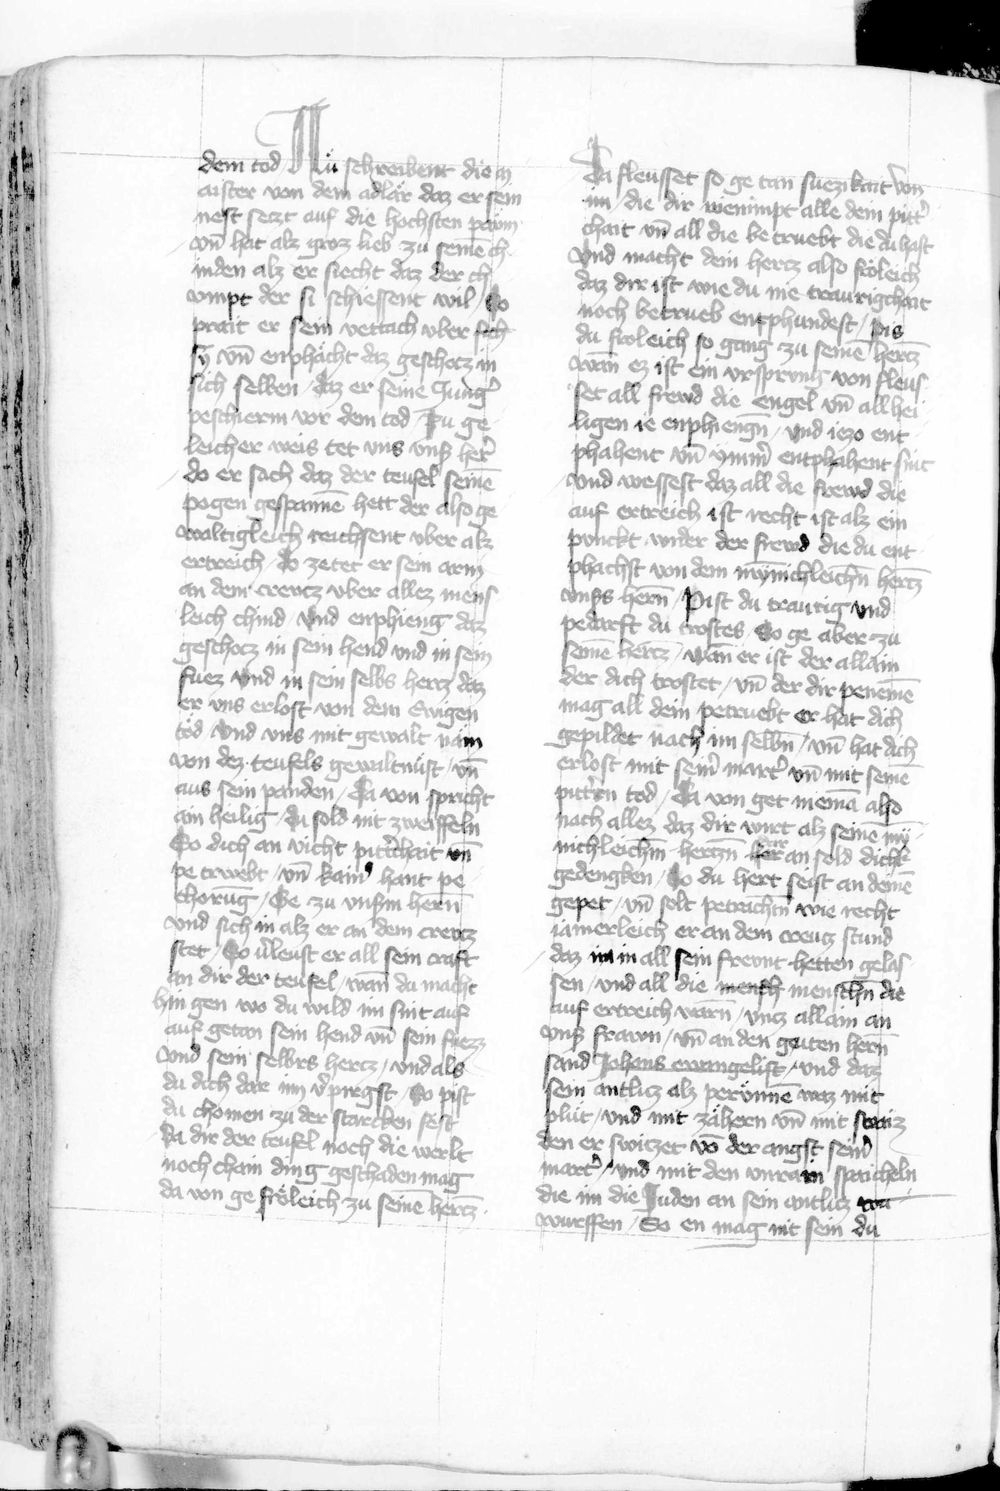 dem tod Nu schreibent die m
aister von dem adlär daz er sein
nest setzt auf die hochsten pawm
vn̄ hat alz groz lieb zu seinē ch
inden alz er siecht daz der ch
vmpt der si schiessent wil / So
prait er sein vettach vber sich
sy vn̄ enphächt daz geschocz in
sich selben / daz er seine Jungˀ
peschierm vor dem tod / Zu ge
leicher weis tet uns unsˀ herˀ
do er sach daz der teufel seinē
pogen gespannē hett der also ge
waltigleich reichsent vber alz
ertreich / do zetet er sein arm
an dem crewcz vber allez mens
leich chind / Vnd enphieng daz
geschocz in sein hend vnd in sein
fuez Vnd in sein selbs hertz daz
er vns erlost von dem Ewigen
tod / Vnd vns mit gewalt nam
von dez teufels gewaltnüst / vn̄
aus sein panden / Da von spricht
ain heilig / Du sold nit zweiffeln
So dich an vicht pittˀchait vn̄
petrwebt / vn̄ kainˀ hant pe
chorūg / Ge zu vnsˀm hern̄
vnd sich in alz er an dem crewcz
stet / So vˀleust er all sein craft
an dir der teufel / wan̄ du macht
hin gen wo du wild im sint auf
auf getan sein hend vn̄ sein fuezz
Vnd sein selbrs hercz / vnd als
du dich dar in vˀpirgst / So pist
du chomen zu der starcken fest
Da dir der teufel noch die werlt
noch chain ding geschaden mag
da von ge fröleich zu seinē hertz
Da fleusset so ge tan suezikait von
im / die dir wenimpt alle dein pittˀ
chait vn̄ all die betruebt die du hast
Vnd macht dein hertz also fröleich
daz dir ist wie du nie traurigchait
noch betrueb entphundest / Pis
du froleich so gang zu seinē hertz
Wan̄ ez ist ein vrsprung von fleus
ser all frewd die engel vn̄ all hei
ligen ie enphiengn̄ / Vnd iezo ent
phahent vn̄ ymmˀ entphahent sint
Vnd wessest daz all die frewd die
auf ertreich ist recht ist alz ein
punckt wider der frewd die du ent
phachst von dem mynichleichn̄ hertz
vnsˀs hern̄ / Pist du traurig vnd
pedarft du trostes / So ge aber zu
seinē hertz / Wan̄ er ist der allain
der dich trostet / vn̄ der dir penemē
mag all dein petruebt er hat dich
gepildet nach im selbn̄ / vn̄ hat dich
erlost mit seinˀ martˀ vn̄ mit seinē
pittˀn tod / Da von get niemā also
nach allez daz dir wirt alz seine my
nichleichm̄ hertzn̄ dar an sold dich
gedengken / So du hert seist an deinē
gepet / vn̄ solt petrichtn̄ wie recht
iamerleich er an dem creug stund
daz im in all sein frewnt hetten gelas
sen / vnd all die mensch menschn̄ die
auf ertreich warn̄ / vntz allain an
vnsˀ frawn / vn̄ an den guten hern̄
sand Johans ewangelist / vnd daz
sein antlicz alz perünnē waz mit
plüt / vnd mit zähern vn̄ mit swaiz
den er swiczet vō der angst seinˀ
martˀ / vnd mit den vnrain spaicheln
die im die Juden an sein antlicz
wurffen / So en mag nit sein du